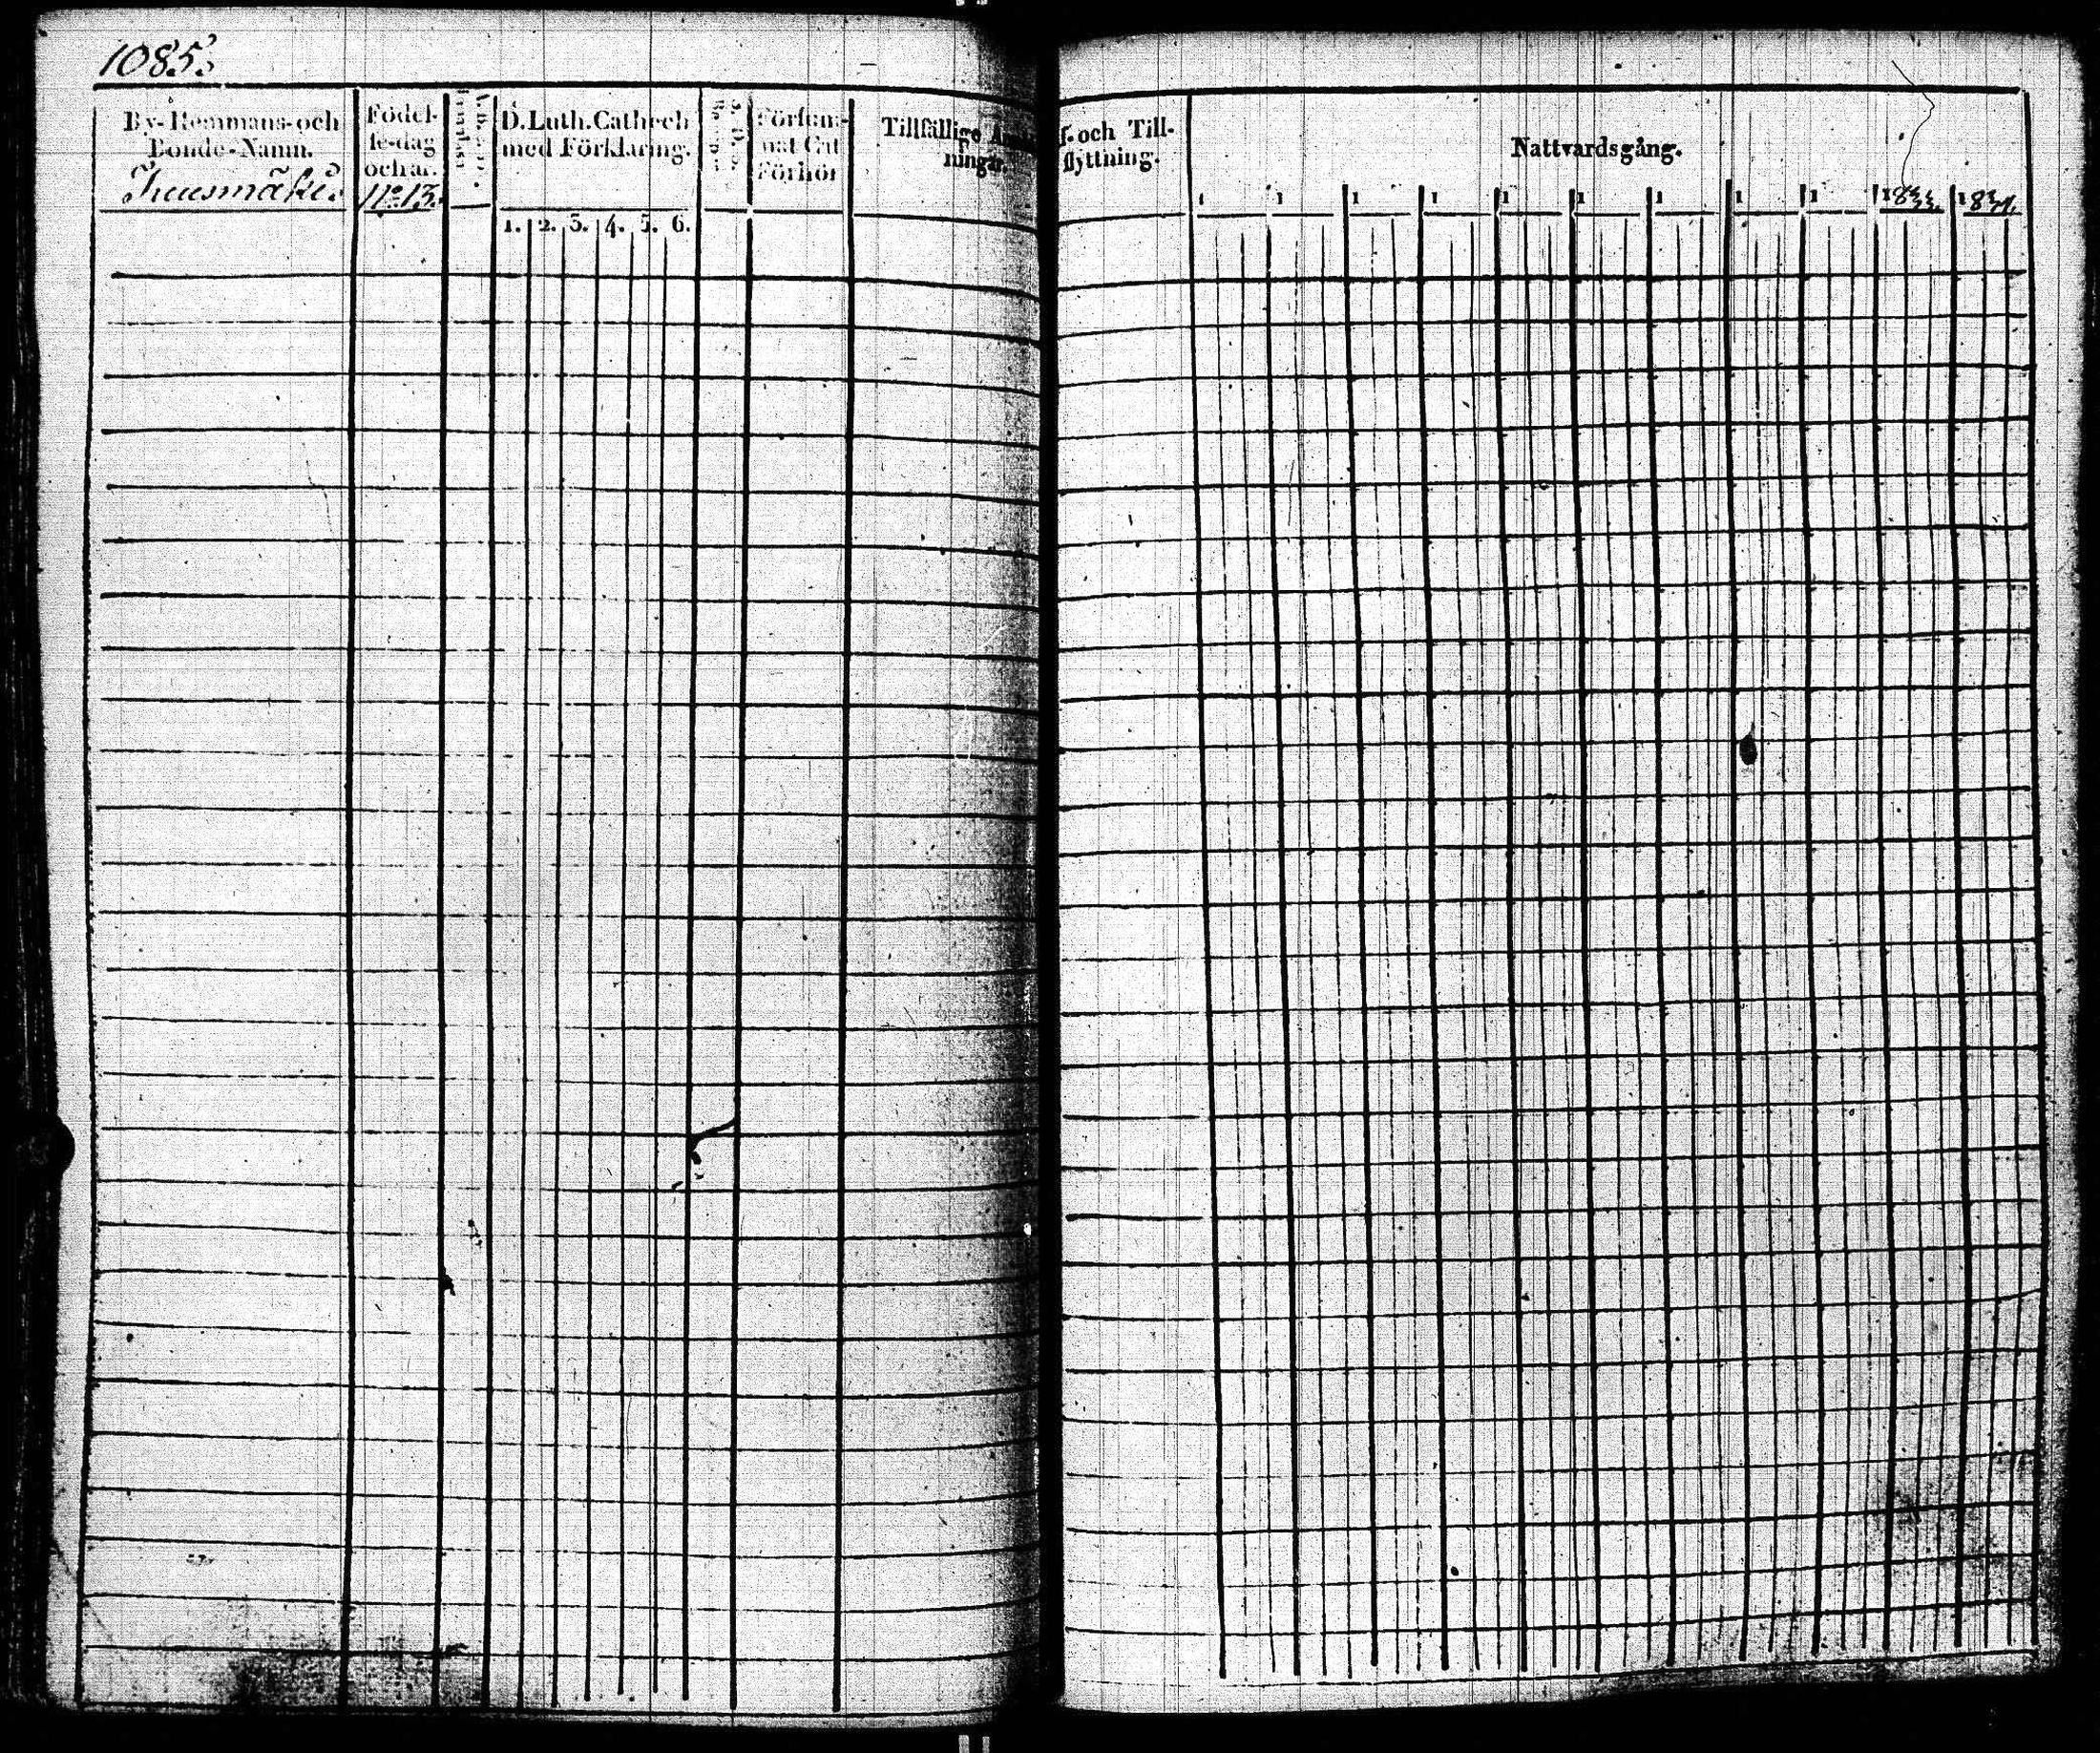 1085.
By-Hemmans-och
Bonde-Namn.
Födel-
se-dag
och år.
N:o 13.
D. Luth. Cathech
med Förklaring.
1. 2. 3. 4. 5. 6.
Försum-
nat Cat
Förhör
Tillfällige
ningar.
f. och Till-
flyttning.
Nattvardsgång.
1 1 1 1 1 1 1 1 1 18 18